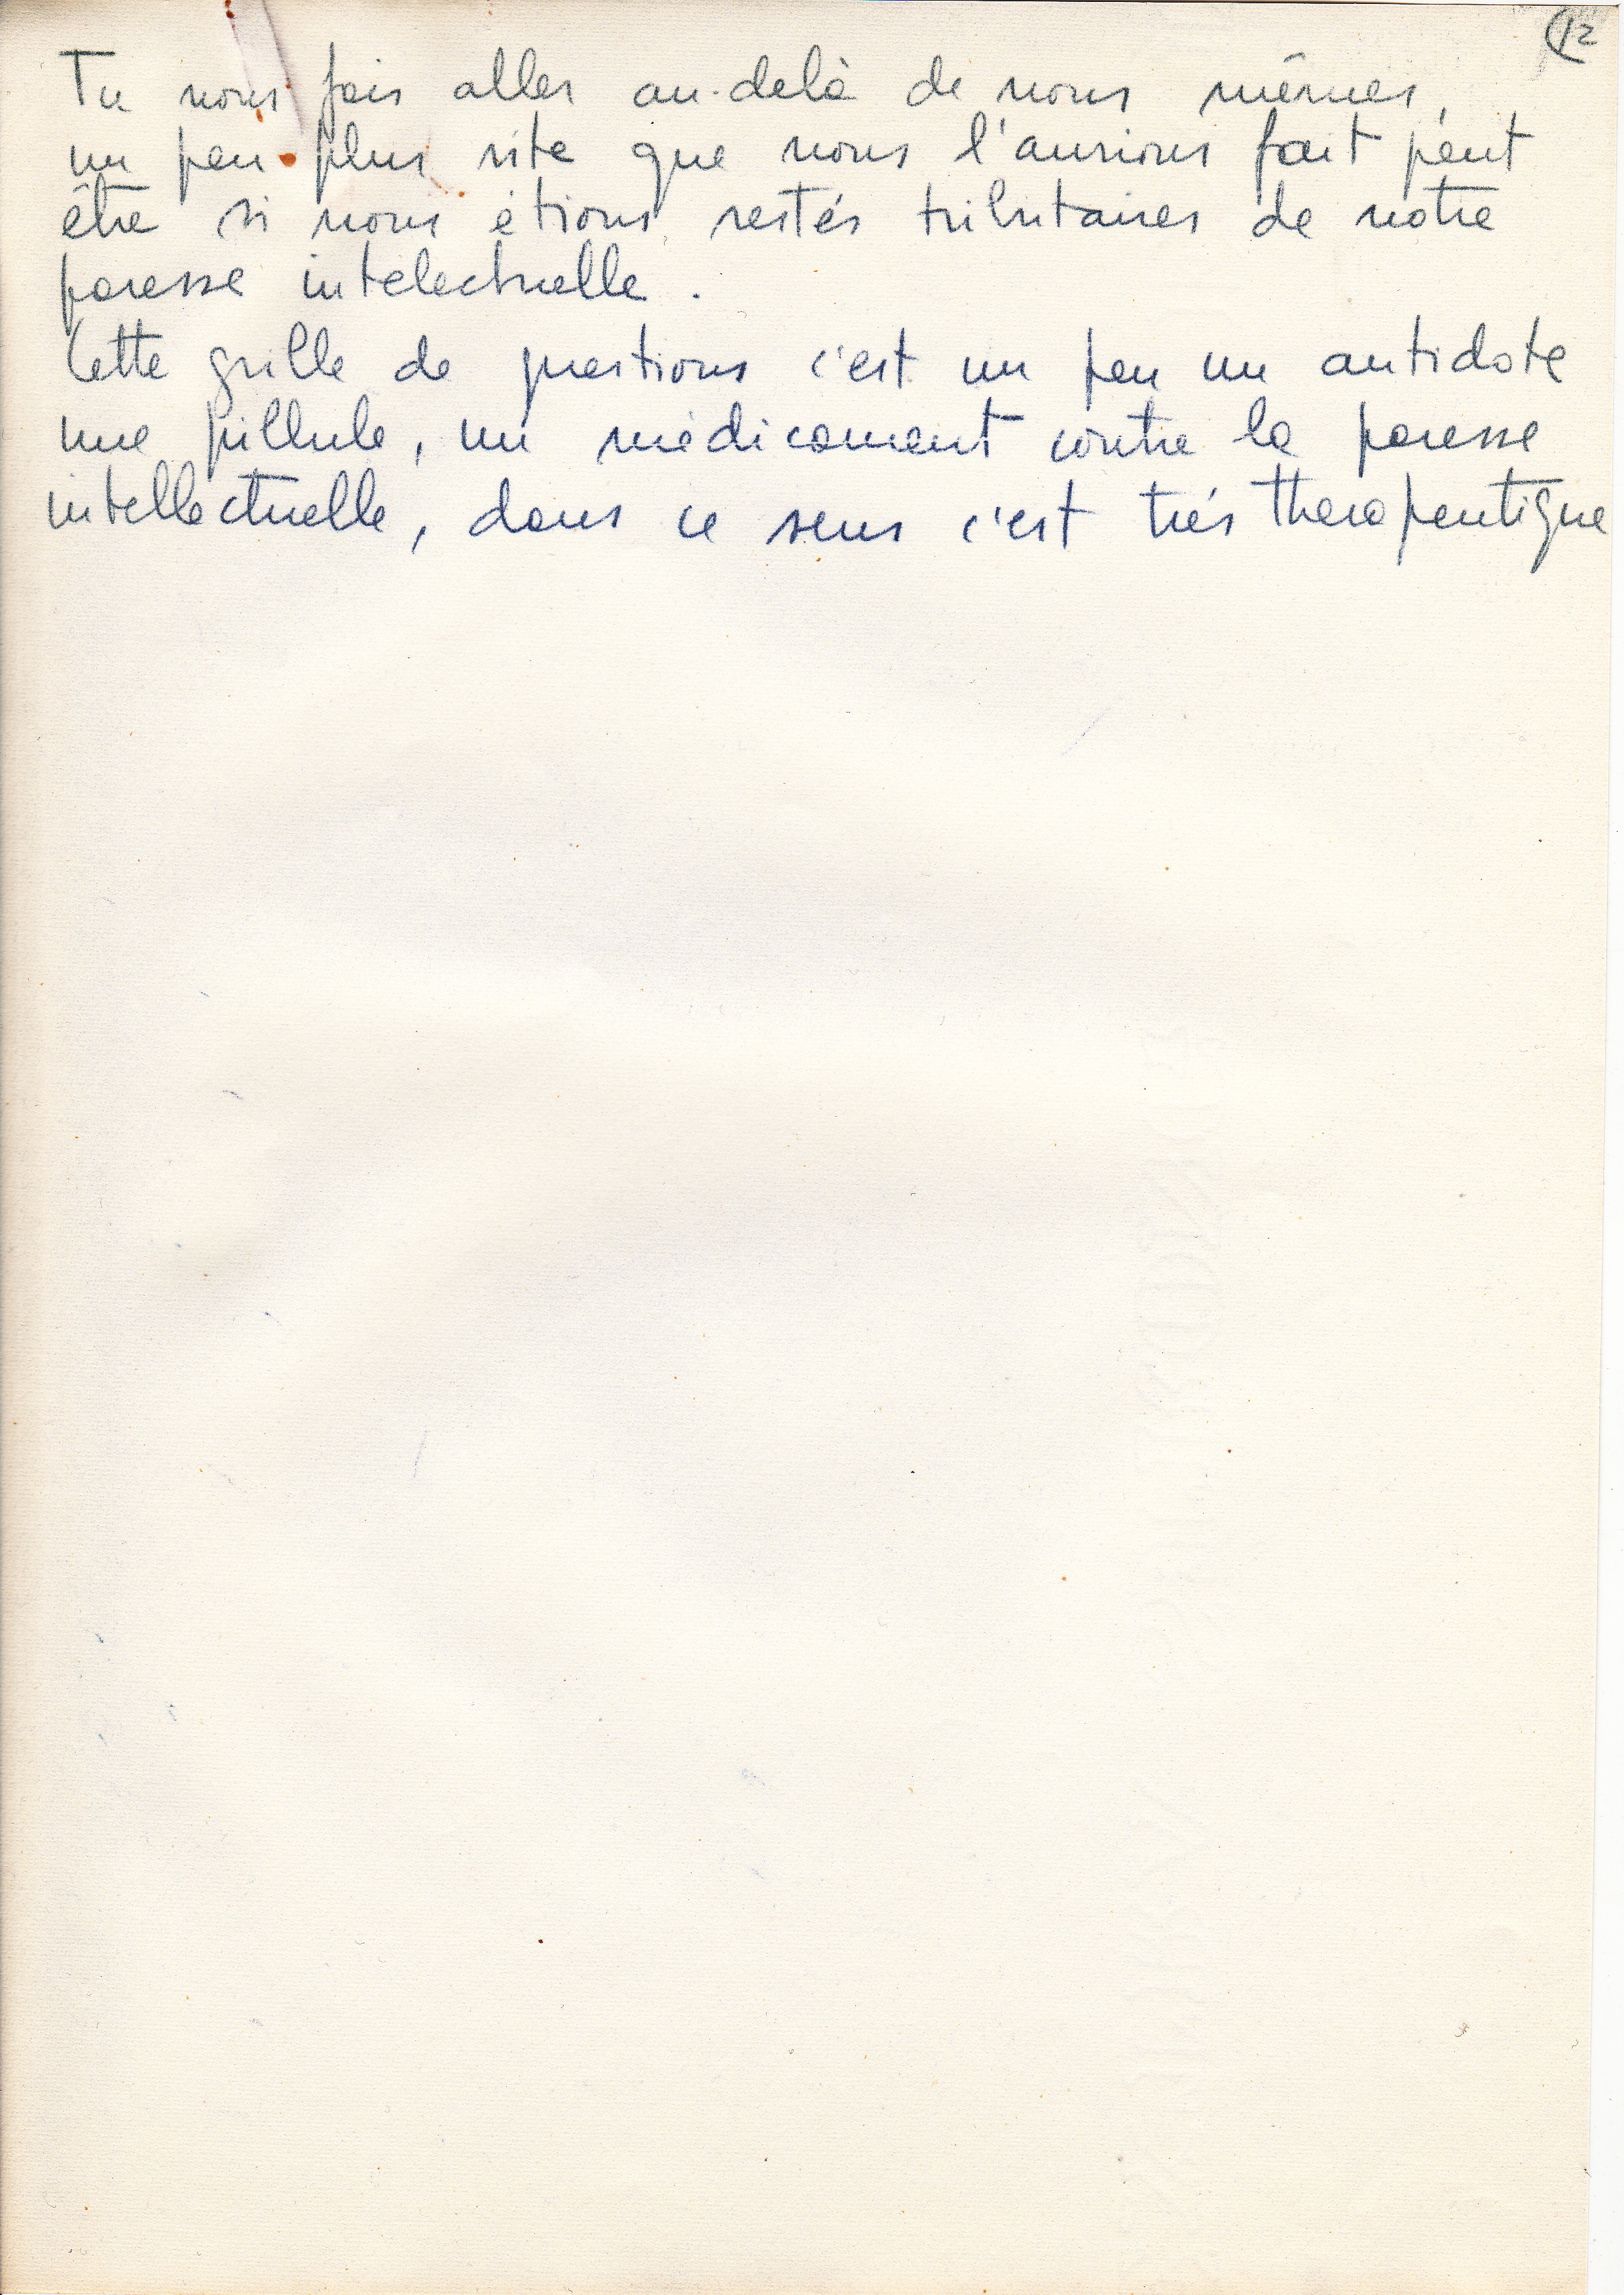 12
Tu nous fais aller au-delà de nous mêmes,
un peu plus vite que nous l'aurions fait peut
être si nous étions restés tributaires de notre
paresse intelectuelle.
Cette grille de questions c'est un peu un antidote
une pillule, un médicament contre la paresse
intellectuelle, dans ce sens c'est trés therapeutique